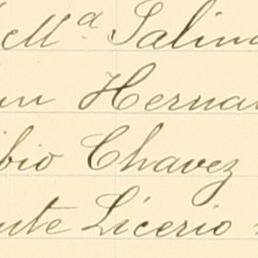 Mª Salina
Herna
bio Chavez
nte Licerio